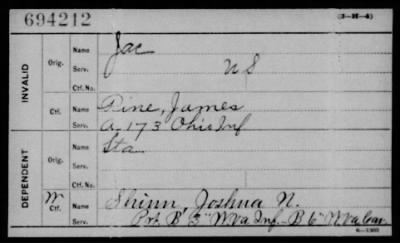 694212
(3-H-4)
INVALID
Orig.
Name Jac
Serv. US
Ctf. No.
Ctf.
Name Pine, James
Serv. A-173 Ohio Inf
DEPENDENT
Orig.
Name Sta
Serv.
Ctf. No.
W
Ctf.
Name Shinn, Joshua N.
Serv. Pvt B, 3" W Va Inf - B 6" W Va Cav